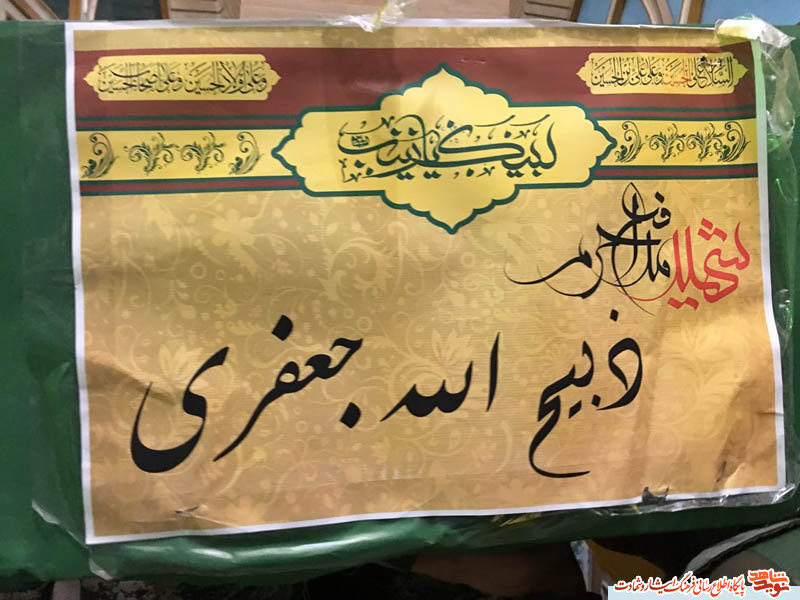 السلام علی الحسین وعلی علی بن الحسین
وعلی اولاد الحسین وعلی اصحاب الحسین
لبیک یا زینب
شهید مدافع حرم
ذبیح الله جعفری
نوید شاهد
پایگاه اطلاع رسانی فرهنگ ایثار و شهادت